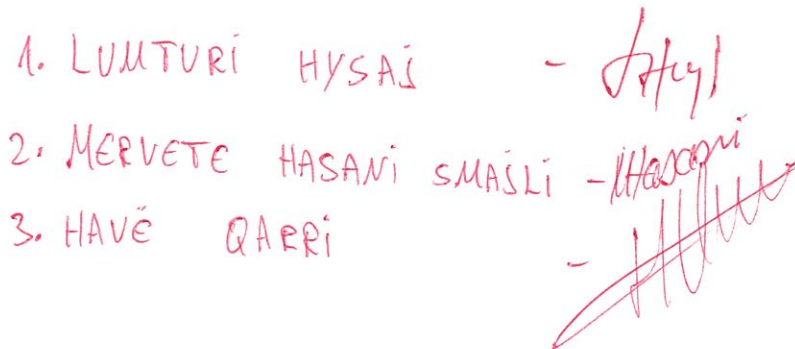 1. LUMTURI HYSAJ -
2. MERVETE HASANI SMAJLI - MHasani
3. HAVË QARRI -